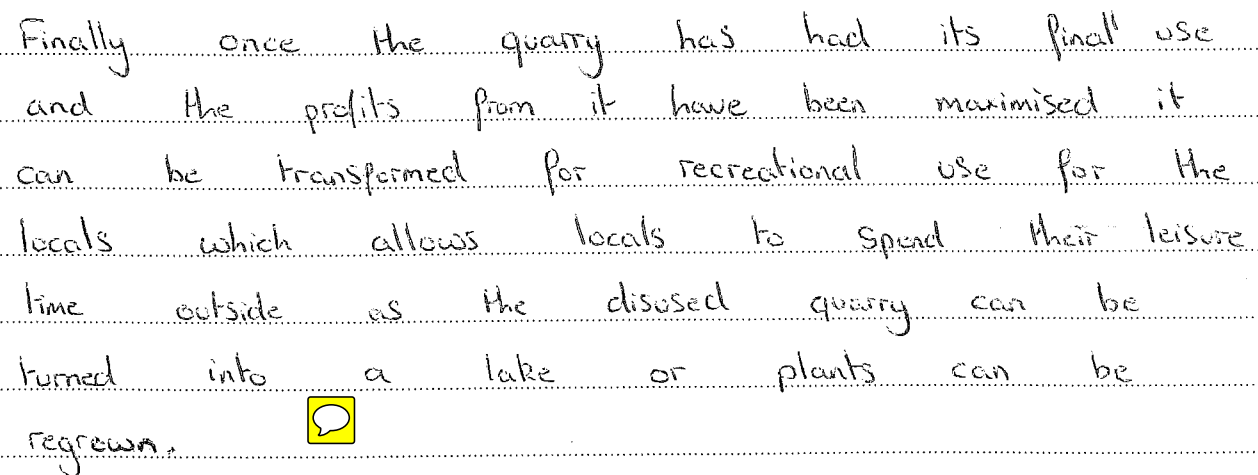 Finally once the quarry has had its final use
and the profits from it have been maximised it
can be transformed for recreational use for the
locals which allows locals to spend their leisure
time outside as the disused quarry can be
turned into a lake or plants can be
regrown.